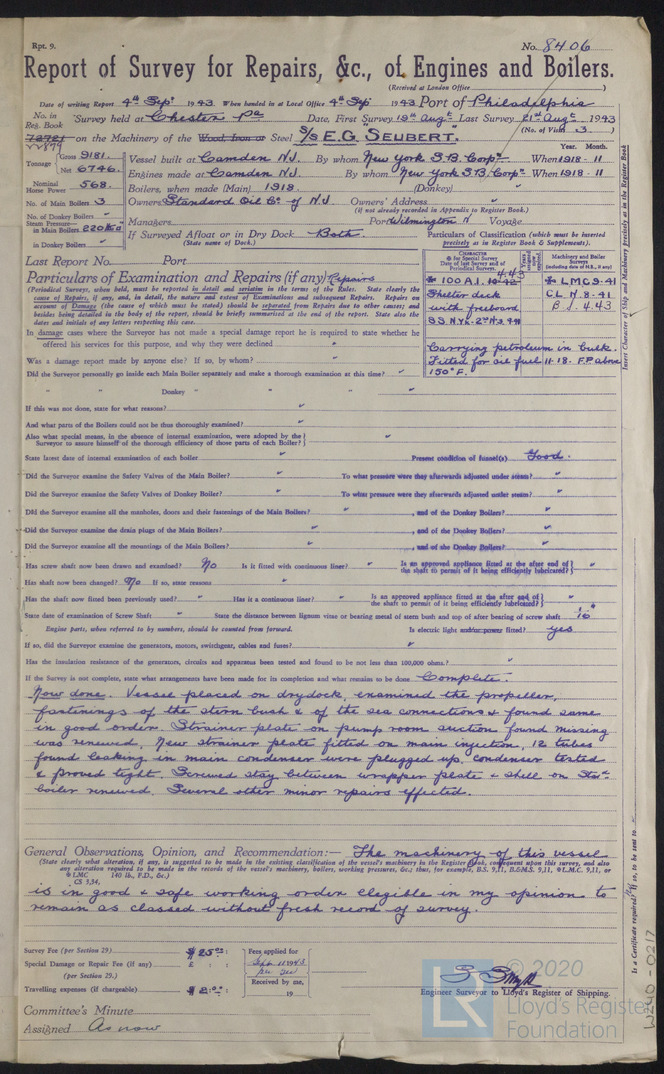 Rpt. 9.
No. 8406
Report of Survey for Repairs, &c., of Engines and Boilers.
(Received at London Office
Date of writing Report 4th Sept 1943. When handed in at Local Office 4th Sep 1943 Port of Philadelphia
No. in Reg. Book
Survey held at Chester Pa Date, First Survey 19th Augt Last Survey 21st Augt 1943
(No. of Visits 3.)
22879 on the Machinery of the Wood, Iron or Steel S/S "E.G. SEUBERT."
Tonnage Gross 9181. Net 6746.
Year. Month.
Vessel built at Camden N.J. By whom New York S.B. Corpn When 1918 - 11
Engines made at Camden N.J. By whom New York S.B. Corpn When 1918 - 11
Nominal Horse Power 568.
Boilers, when made (Main) 1918. (Donkey)
No. of Main Boilers 3
Owners Standard Oil Co. of N.J. Owners' Address
(if not already recorded in Appendix to Register Book.)
No. of Donkey Boilers "
Managers Port Wilmington Voyage
Steam Pressure— in Main Boilers 220 lbs
in Donkey Boilers "
If Surveyed Afloat or in Dry Dock Both
(State name of Dock.)
Particulars of Classification (which must be inserted precisely as in Register Book & Supplements).
Last Report No. Port
Particulars of Examination and Repairs (if any) Repairs
(Periodical Surveys, when held, must be reported in detail and seriatim in the terms of the Rules. State clearly the
cause of Repairs, if any, and, in detail, the nature and extent of Examinations and subsequent Repairs. Repairs on
account of Damage (the cause of which must be stated) should be separated from Repairs due to other causes; and
besides being detailed in the body of the report, should be briefly summarised at the end of the report. State also the
dates and initials of any letters respecting this case.
CHARACTER
for Special Survey
Date of last Survey and of Periodical Surveys.
Machinery and Boiler Surveys
(including date of N.B., if any)
4.43
100 A.1. 10-42
Shelter deck
with freeboard
LMC 9-41
CL N. 8-41
B.S. 4.43
Carrying petroleum in bulk.
Fitted for oil fuel 11-18. F.P. above
150° F.
In damage cases where the Surveyor has not made a special damage report he is required to state whether he
offered his services for this purpose, and why they were declined
Was a damage report made by anyone else? If so, by whom?
Did the Surveyor personally go inside each Main Boiler separately and make a thorough examination at this time?
" " Donkey " " "
If this was not done, state for what reasons?
And what parts of the Boilers could not be thus thoroughly examined?
Also what special means, in the absence of internal examination, were adopted by the
Surveyor to assure himself of the thorough efficiency of those parts of each Boiler?
State latest date of internal examination of each boiler Present condition of funnel(s) Good.
Did the Surveyor examine the Safety Valves of the Main Boiler? To what pressure were they afterwards adjusted under steam?
Did the Surveyor examine the Safety Valves of Donkey Boiler? To what pressure were they afterwards adjusted under steam?
Did the Surveyor examine all the manholes, doors and their fastenings of the Main Boilers? , and of the Donkey Boilers?
Did the Surveyor examine the drain plugs of the Main Boilers? , and of the Donkey Boilers?
Did the Surveyor examine all the mountings of the Main Boilers? , and of the Donkey Boilers?
Has screw shaft now been drawn and examined? No Is it fitted with continuous liner? Is an approved appliance fitted at the after end of the shaft to permit of it being efficiently lubricated?
Has shaft now been changed? No If so, state reasons
Has the shaft now fitted been previously used? Has it a continuous liner? Is an approved appliance fitted at the after end of the shaft to permit of it being efficiently lubricated?
State date of examination of Screw Shaft State the distance between lignum vitæ or bearing metal of stern bush and top of after bearing of screw shaft
Engine parts, when referred to by numbers, should be counted from forward. Is electric light and/or power fitted? yes
If so, did the Surveyor examine the generators, motors, switchgear, cables and fuses?
Has the insulation resistance of the generators, circuits and apparatus been tested and found to be not less than 100,000 ohms?
If the Survey is not complete, state what arrangements have been made for its completion and what remains to be done Complete.
Now done. Vessel placed on drydock, examined the propeller,
fastenings of the stern bush & of the sea connections & found same
in good order. Strainer plate on pump room suction found missing
was renewed, New strainer plate fitted on main injection, 12 tubes
found leaking in main condenser were plugged up, condenser tested
& proved tight. Screwed stay between wrapper plate & shell on Starb.
boiler renewed. Several other minor repairs effected.
General Observations, Opinion, and Recommendation:— The machinery of this vessel
(State clearly what alteration, if any, is suggested to be made in the existing classification of the vessel's machinery in the Register Book, consequent upon this survey, and also
any alteration required to be made in the records of the vessel's machinery, boilers, working pressures, &c.; thus, for example, B.S. 9,11, B.&M.S. 9,11, L.M.C. 9,11, or
L.M.C. 140 lb., F.D., &c.)
CS 5,34,
is in good & safe working order eligible in my opinion to
remain as classed without fresh record of survey.
Survey Fee (per Section 29) $ 25.00
Special Damage or Repair Fee (if any) £
(per Section 29.)
Travelling expenses (if chargeable) $ 2.00
Fees applied for
Sep. 11 1943
Received by me,
19
S. Smyth
Engineer Surveyor to Lloyd's Register of Shipping.
Committee's Minute
Assigned As now
Insert Character of Ship and Machinery precisely as in the Register Book
Is a Certificate required? If so, to be sent to
W240-0217
© 2020
Lloyd's Register
Foundation